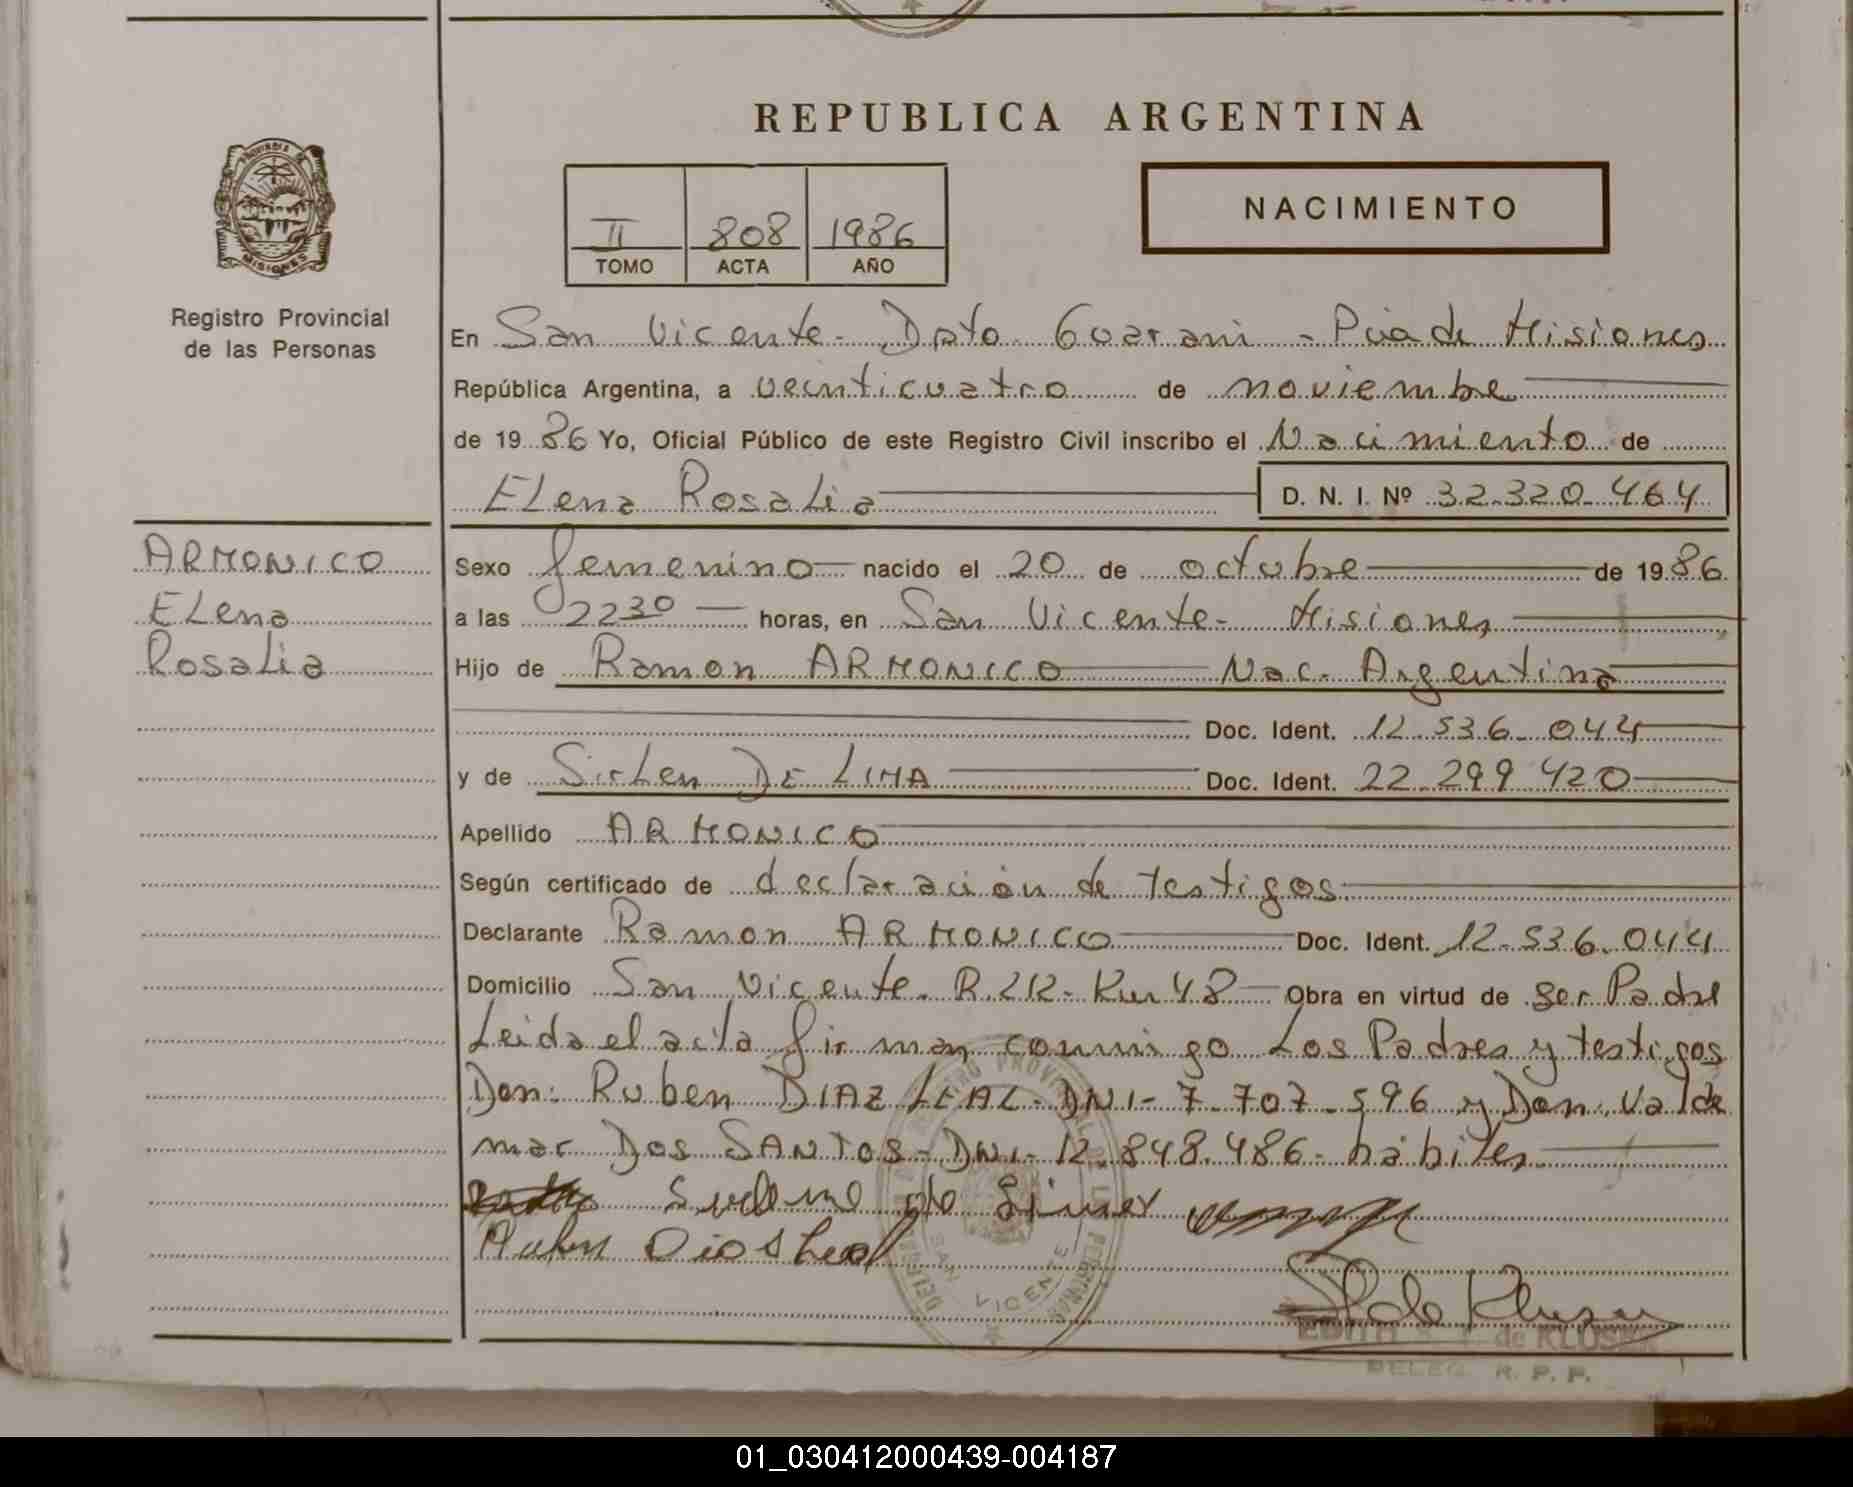 REPUBLICA ARGENTINA
PROVINCIA DE
MISIONES
Registro Provincial
de las Personas
II 808 1986
TOMO ACTA AÑO
NACIMIENTO
En San Vicente - Dpto Guarani - Pcia de Misiones
República Argentina, a veinticuatro de noviembre
de 1986 Yo, Oficial Público de este Registro Civil inscribo el Nacimiento de
Elena Rosalia D. N. I. Nº 32.320.464
ARMONICO
Elena
Rosalia
Sexo femenino nacido el 20 de octubre de 1986
a las 22 30 horas, en San Vicente - Misiones
Hijo de Ramon ARMONICO Nac. Argentina
Doc. Ident. 12.536.044
y de Sirlen DE LIMA Doc. Ident. 22.299.420
Apellido ARMONICO
Según certificado de declaración de testigos
Declarante Ramon ARMONICO Doc. Ident. 12.536.044
Domicilio San Vicente. R. 212 - Km 48 Obra en virtud de ser Padre
Leida el acta firman conmigo Los Padres y testigos
Don: Ruben DIAZ LEAL - DNI - 7.707.596 y Don. Valde
mar DOS SANTOS - DNI - 12.848.486 - hábiles
Ruben Dias Leal
SAN VICENTE
de KLUSK
DELEG. R. P. P.
01_030412000439-004187